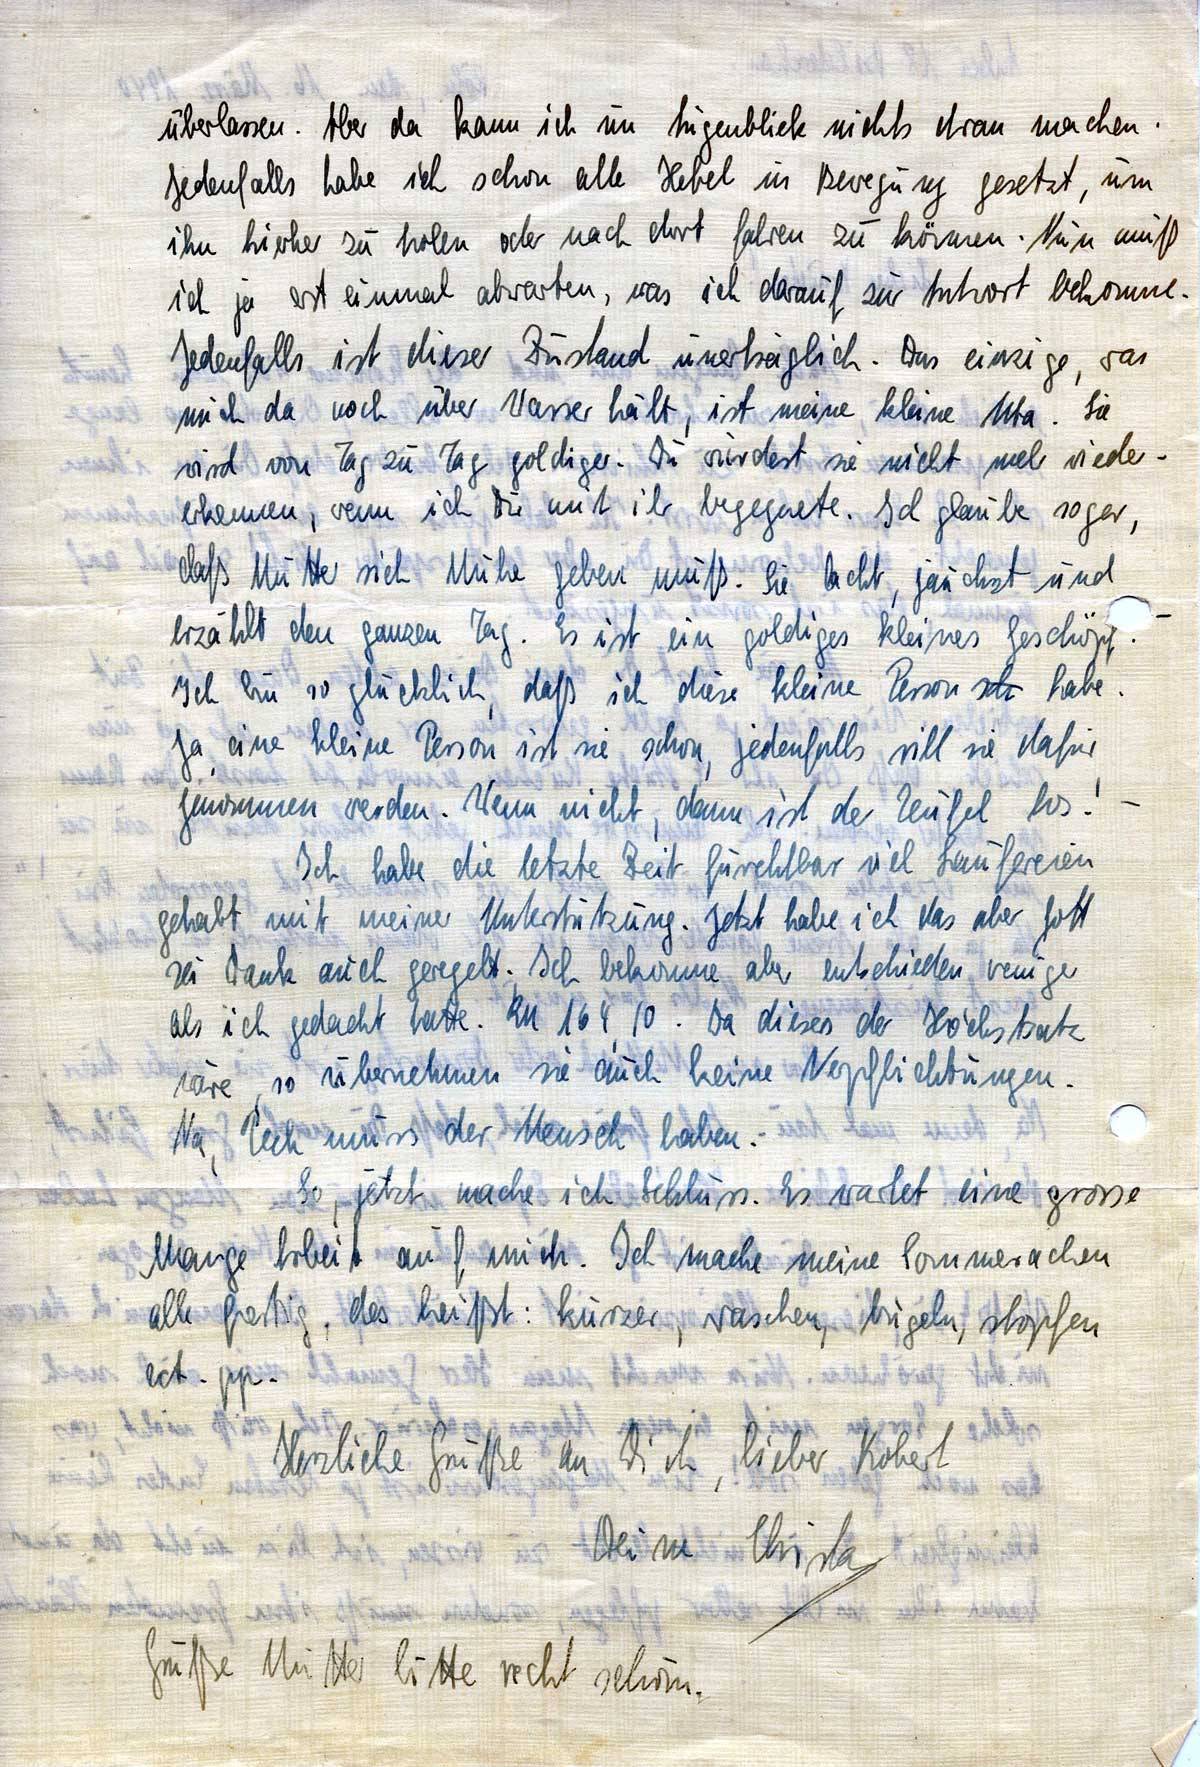 überlassen. Aber da kann ich im Augenblick nichts dran machen.
Jedenfalls habe ich schon alle Hebel in Bewegung gesetzt, um
ihn hierher zu holen oder nach dort fahren zu können. Nun muß
ich ja erst einmal abwarten, was ich darauf zur Antwort bekomme.
Jedenfalls ist dieser Zustand unerträglich. Das einzige, was
mich da noch über Wasser hält, ist meine kleine Uta. Sie
wird von Tag zu Tag goldiger. Du würdest sie nicht mehr wieder-
erkennen, wenn ich Dir mit ihr begegnete. Ich glaube sogar,
daß Mutter sich Mühe geben muß. Sie lacht, jauchzt und
erzählt den ganzen Tag. Es ist ein goldiges kleines Geschöpf. -
Ich bin so glücklich, daß ich diese kleine Person habe.
Ja, eine kleine Person ist sie schon, jedenfalls will sie dafür
genommen werden. Wenn nicht, dann ist der Teufel los! -
Ich habe die letzte Zeit furchtbar viel Laufereien
gehabt mit meiner Unterstützung. Jetzt habe ich das aber Gott
sei Dank auch geregelt. Ich bekomme aber entschieden weniger
als ich gedacht hatte. RM 164,10. Da dieses der Höchstsatz
wäre, so übernehmen sie auch keine Verpflichtungen.
Na, Pech muss der Mensch haben. -
So, jetzt mache ich Schluss. Es wartet eine grosse
Menge Arbeit auf mich. Ich mache meine Sommersachen
alle fertig, das heißt: kürzer, waschen, bügeln, stopfen
ect. pp.
Herzliche Grüße an Dich, lieber Robert
Deine Christa
Grüße Mutter bitte recht schön.